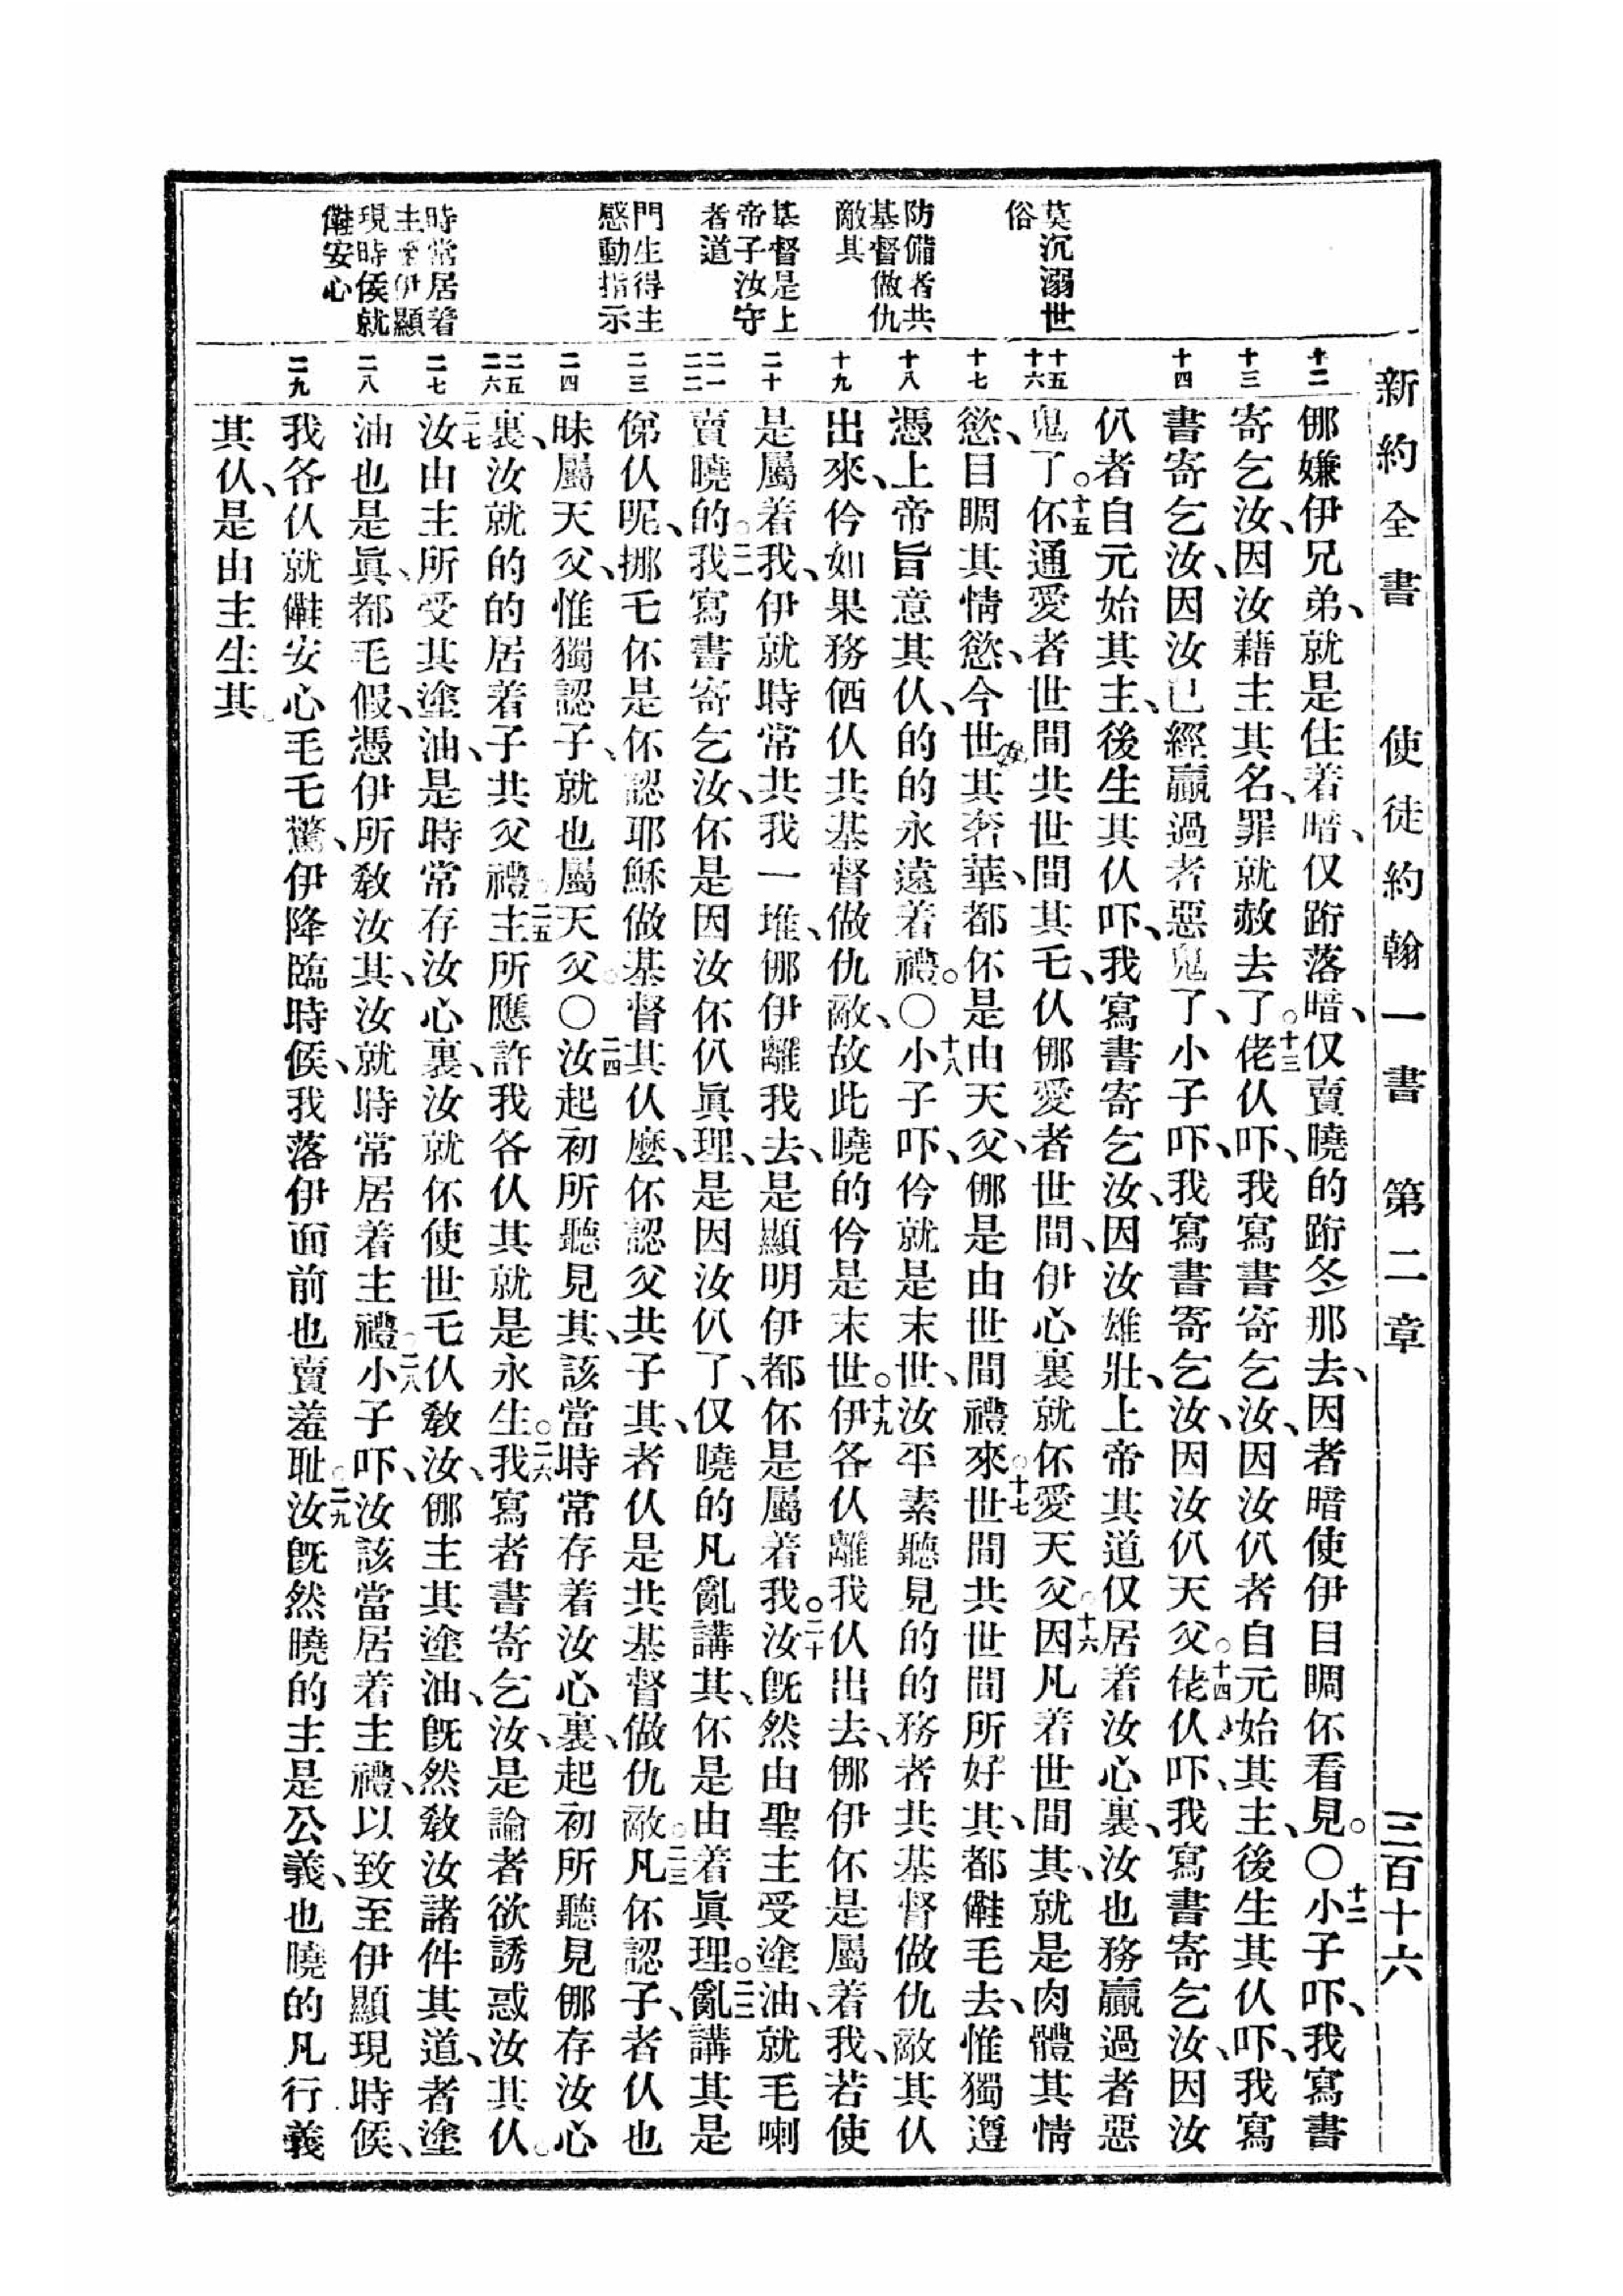 新約全書 使徒約翰一書 第二章 三百十六
莫沉溺世
俗
防備者共
基督做仇
敵其
基督是上
帝子汝守
者道
門生得主
感動指示
時常居着
主伊顯
現時候就
儺安心
十二
十三
十四
十五
十六
十七
十八
十九
二十
二一
二二
二三
二四
二五
二六
二七
二八
二九
㑚嫌伊兄弟、就是住着暗、仅跡落暗、仅賣曉的跡冬那去、因者暗使伊目睭伓看見。〇十二小子吓、我寫書
寄乞汝、因汝藉主其名、罪就赦去了。十三佬仈吓、我寫書寄乞汝、因汝仈者自元始其主、後生其仈吓、我寫
書寄乞汝、因汝已經贏過者惡鬼了、小子吓、我寫書寄乞汝、因汝仈天父。十四佬仈吓、我寫書寄乞汝、因汝
仈者自元始其主、後生其仈吓、我寫書寄乞汝、因汝雄壯、上帝其道仅居着汝心裏、汝也務贏過者惡
鬼了。十五伓通愛者世間共世間其乇、仈㑚愛者世間、伊心裏就伓愛天父。十六因凡着世間其、就是肉體其情
慾、目睭其情慾、今世其奢華、都伓是由天父、㑚是由世間禮來。十七世間共世間所好其、都儺毛去、惟獨遵
憑上帝旨意其仈、的的永遠着禮。〇十八小子吓、仱就是末世、汝平素聽見的的務者共基督做仇敵其仈
出來、仱如果務価仈共基督做仇敵、故此曉的仱是末世。十九伊各仈離我仈出去、㑚伊伓是屬着我、若使
是屬着我、伊就時常共我一堆、㑚伊離我去、是顯明伊都伓是屬着我。二十汝旣然由聖主受塗油、就毛喇
賣曉的。二一我寫書寄乞汝、伓是因汝伓仈眞理、是因汝仈了、仅曉的凡亂講其、伓是由着眞理。二二亂講其是
俤仈呢、挪乇伓是伓認耶穌做基督其仈麽、伓認父共子其、者仈是共基督做仇敵。二三凡伓認子、者仈也
昧屬天父、惟獨認子、就也屬天父。〇二四汝起初所聽見其、該當時常存着汝心裏、起初所聽見㑚存汝心
裏、汝就的的居着子共父禮。二五主所應許我各仈其、就是永生。二六我寫者書寄乞汝、是論者欲誘惑汝其仈。
二七汝由主所受其塗油、是時常存汝心裏、汝就伓使世乇仈敎汝、㑚主其塗油、旣然敎汝諸件其道、者塗
油也是眞、都毛假、憑伊所敎汝其、汝就時常居着主禮。二八小子吓、汝該當居着主禮、以致至伊顯現時候、
我各仈就儺安心毛乇驚、伊降臨時候、我落伊面前也賣羞耻。二九汝旣然曉的主是公義、也曉的凡行義
其仈、是由主生其。